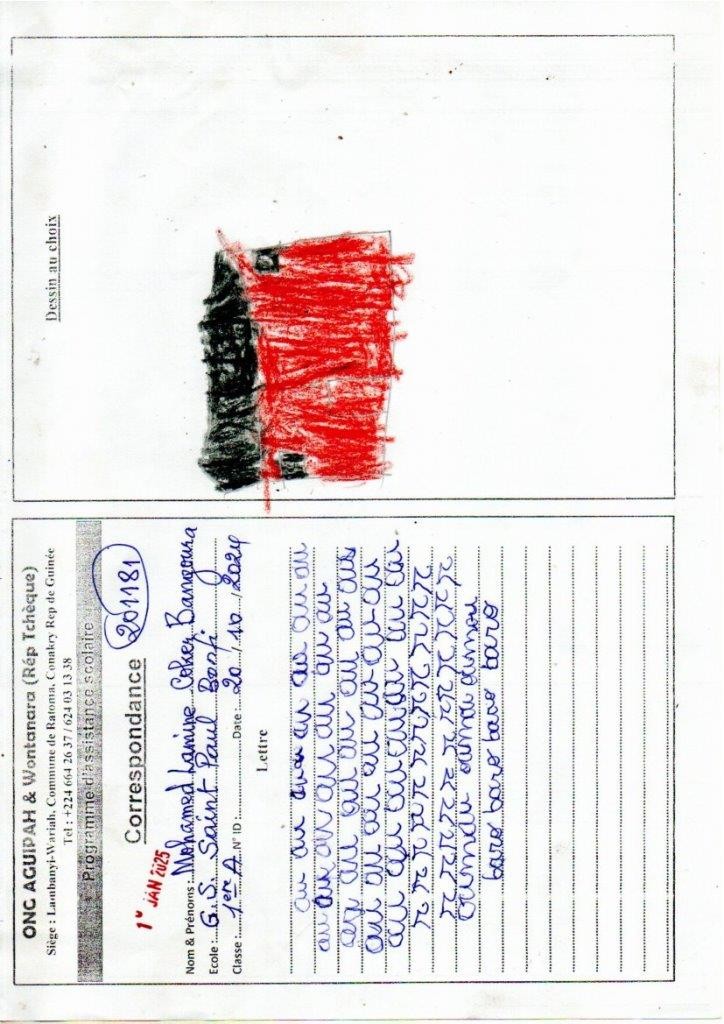 ONG AGUIPAH & Wontanara (Rép Tchèque)
Siège : Lambanyi-Wariah, Commune de Ratoma, Conakry Rep de Guinée
Tel : +224 664 26 37 / 624 03 13 38
Programme d'assistance scolaire
Correspondance
201181
1er JAN 2025
Nom & Prénoms : Mohamed Lamine Bangoura
Ecole : G.S. Saint Paul
Classe : 1ère A N° ID : Date : 20/10/2024
Lettre
au au au au au au au au
au au au au au au au
au au au au au au
au au au au au au au au
au au au au au au au
r r r r r r r r r r r
r r r r r r r r r r
oumou oumou oumou
baro baro baro baro
Dessin au choix